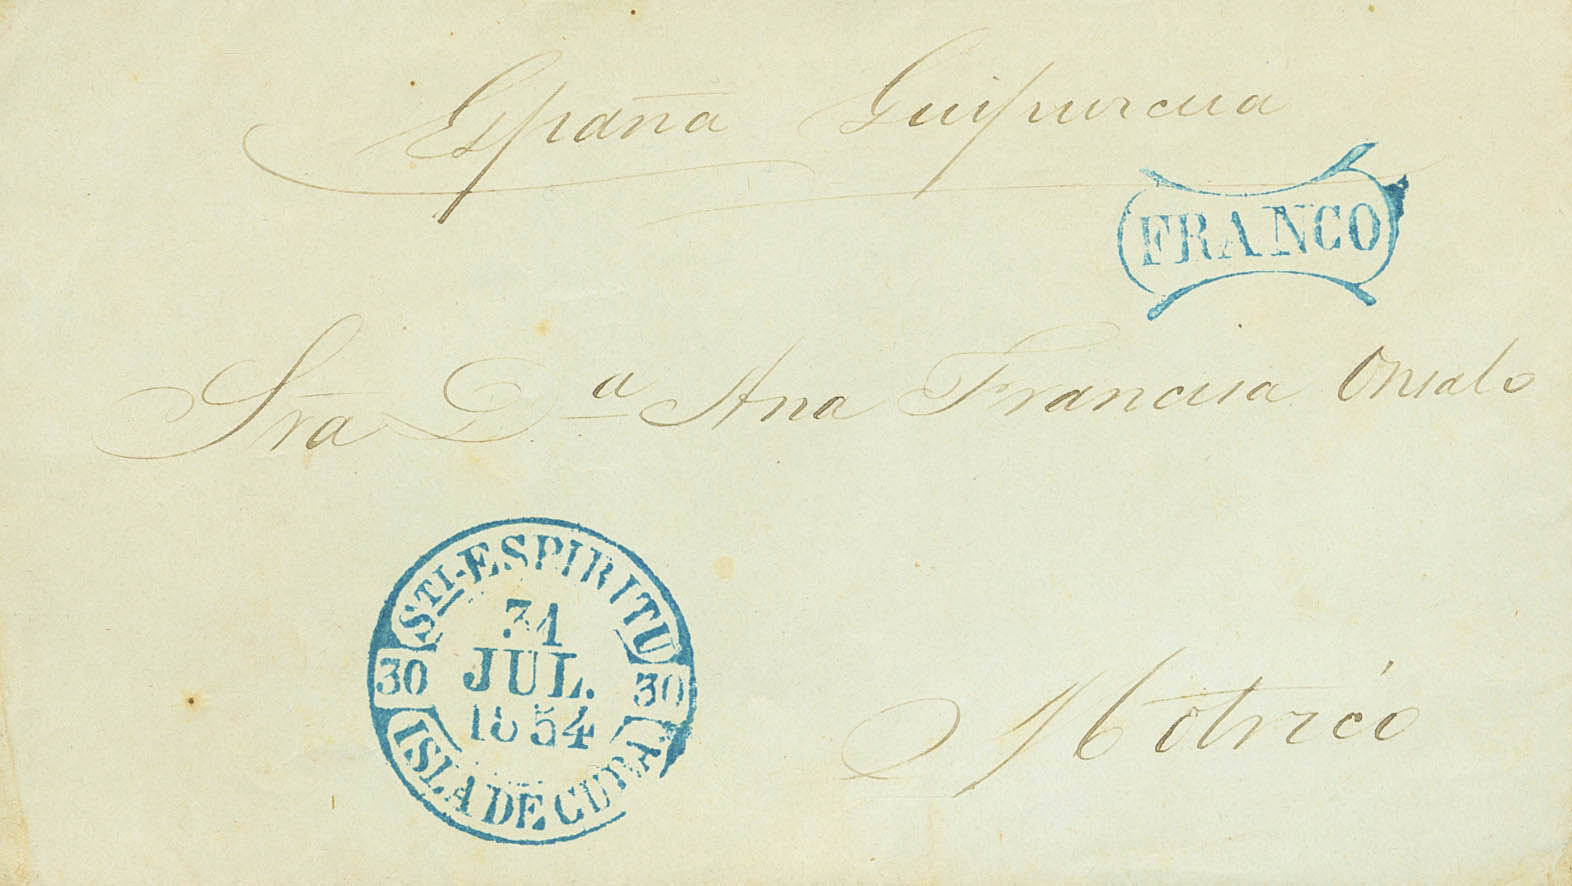 España Guipurcua
FRANCO
Sra D.a Ana Francisa
STI-ESPIRITU
31
JUL.
1854
30 30
ISLA DE CUBA
Motrico